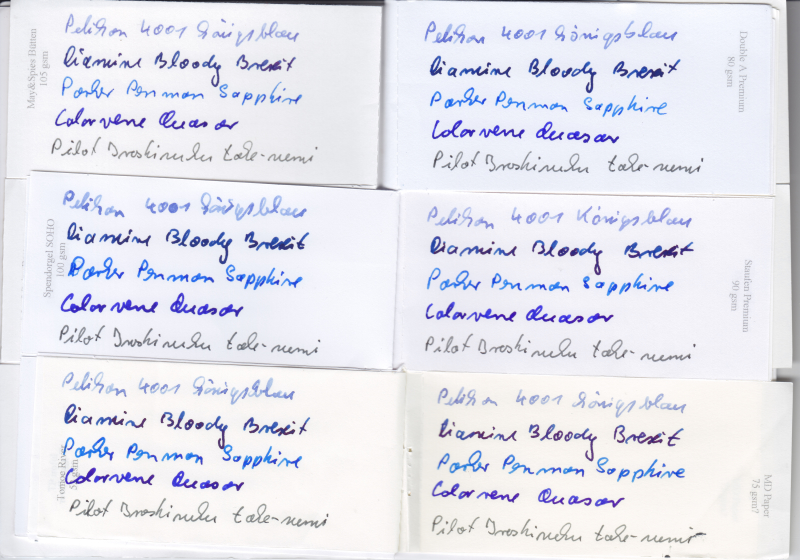 May&Spies Hütten
105 gsm
Pelikan 4001 Königsblau
Diamine Bloody Brexit
Parker Penman Sapphire
Colorvene Quasar
Pilot Iroshizuku take-sumi
Double A Premium
80 gsm
Pelikan 4001 Königsblau
Diamine Bloody Brexit
Parker Penman Sapphire
Colorvene Quasar
Pilot Iroshizuku take-sumi
Spendorgel SOHO
100 gsm
Pelikan 4001 Königsblau
Diamine Bloody Brexit
Parker Penman Sapphire
Colorvene Quasar
Pilot Iroshizuku take-sumi
Staufen Premium
90 gsm
Pelikan 4001 Königsblau
Diamine Bloody Brexit
Parker Penman Sapphire
Colorvene Quasar
Pilot Iroshizuku take-sumi
Tomoe River
gsm
Pelikan 4001 Königsblau
Diamine Bloody Brexit
Parker Penman Sapphire
Colorvene Quasar
Pilot Iroshizuku take-sumi
MD Paper
75 gsm?
Pelikan 4001 Königsblau
Diamine Bloody Brexit
Parker Penman Sapphire
Colorvene Quasar
Pilot Iroshizuku take-sumi